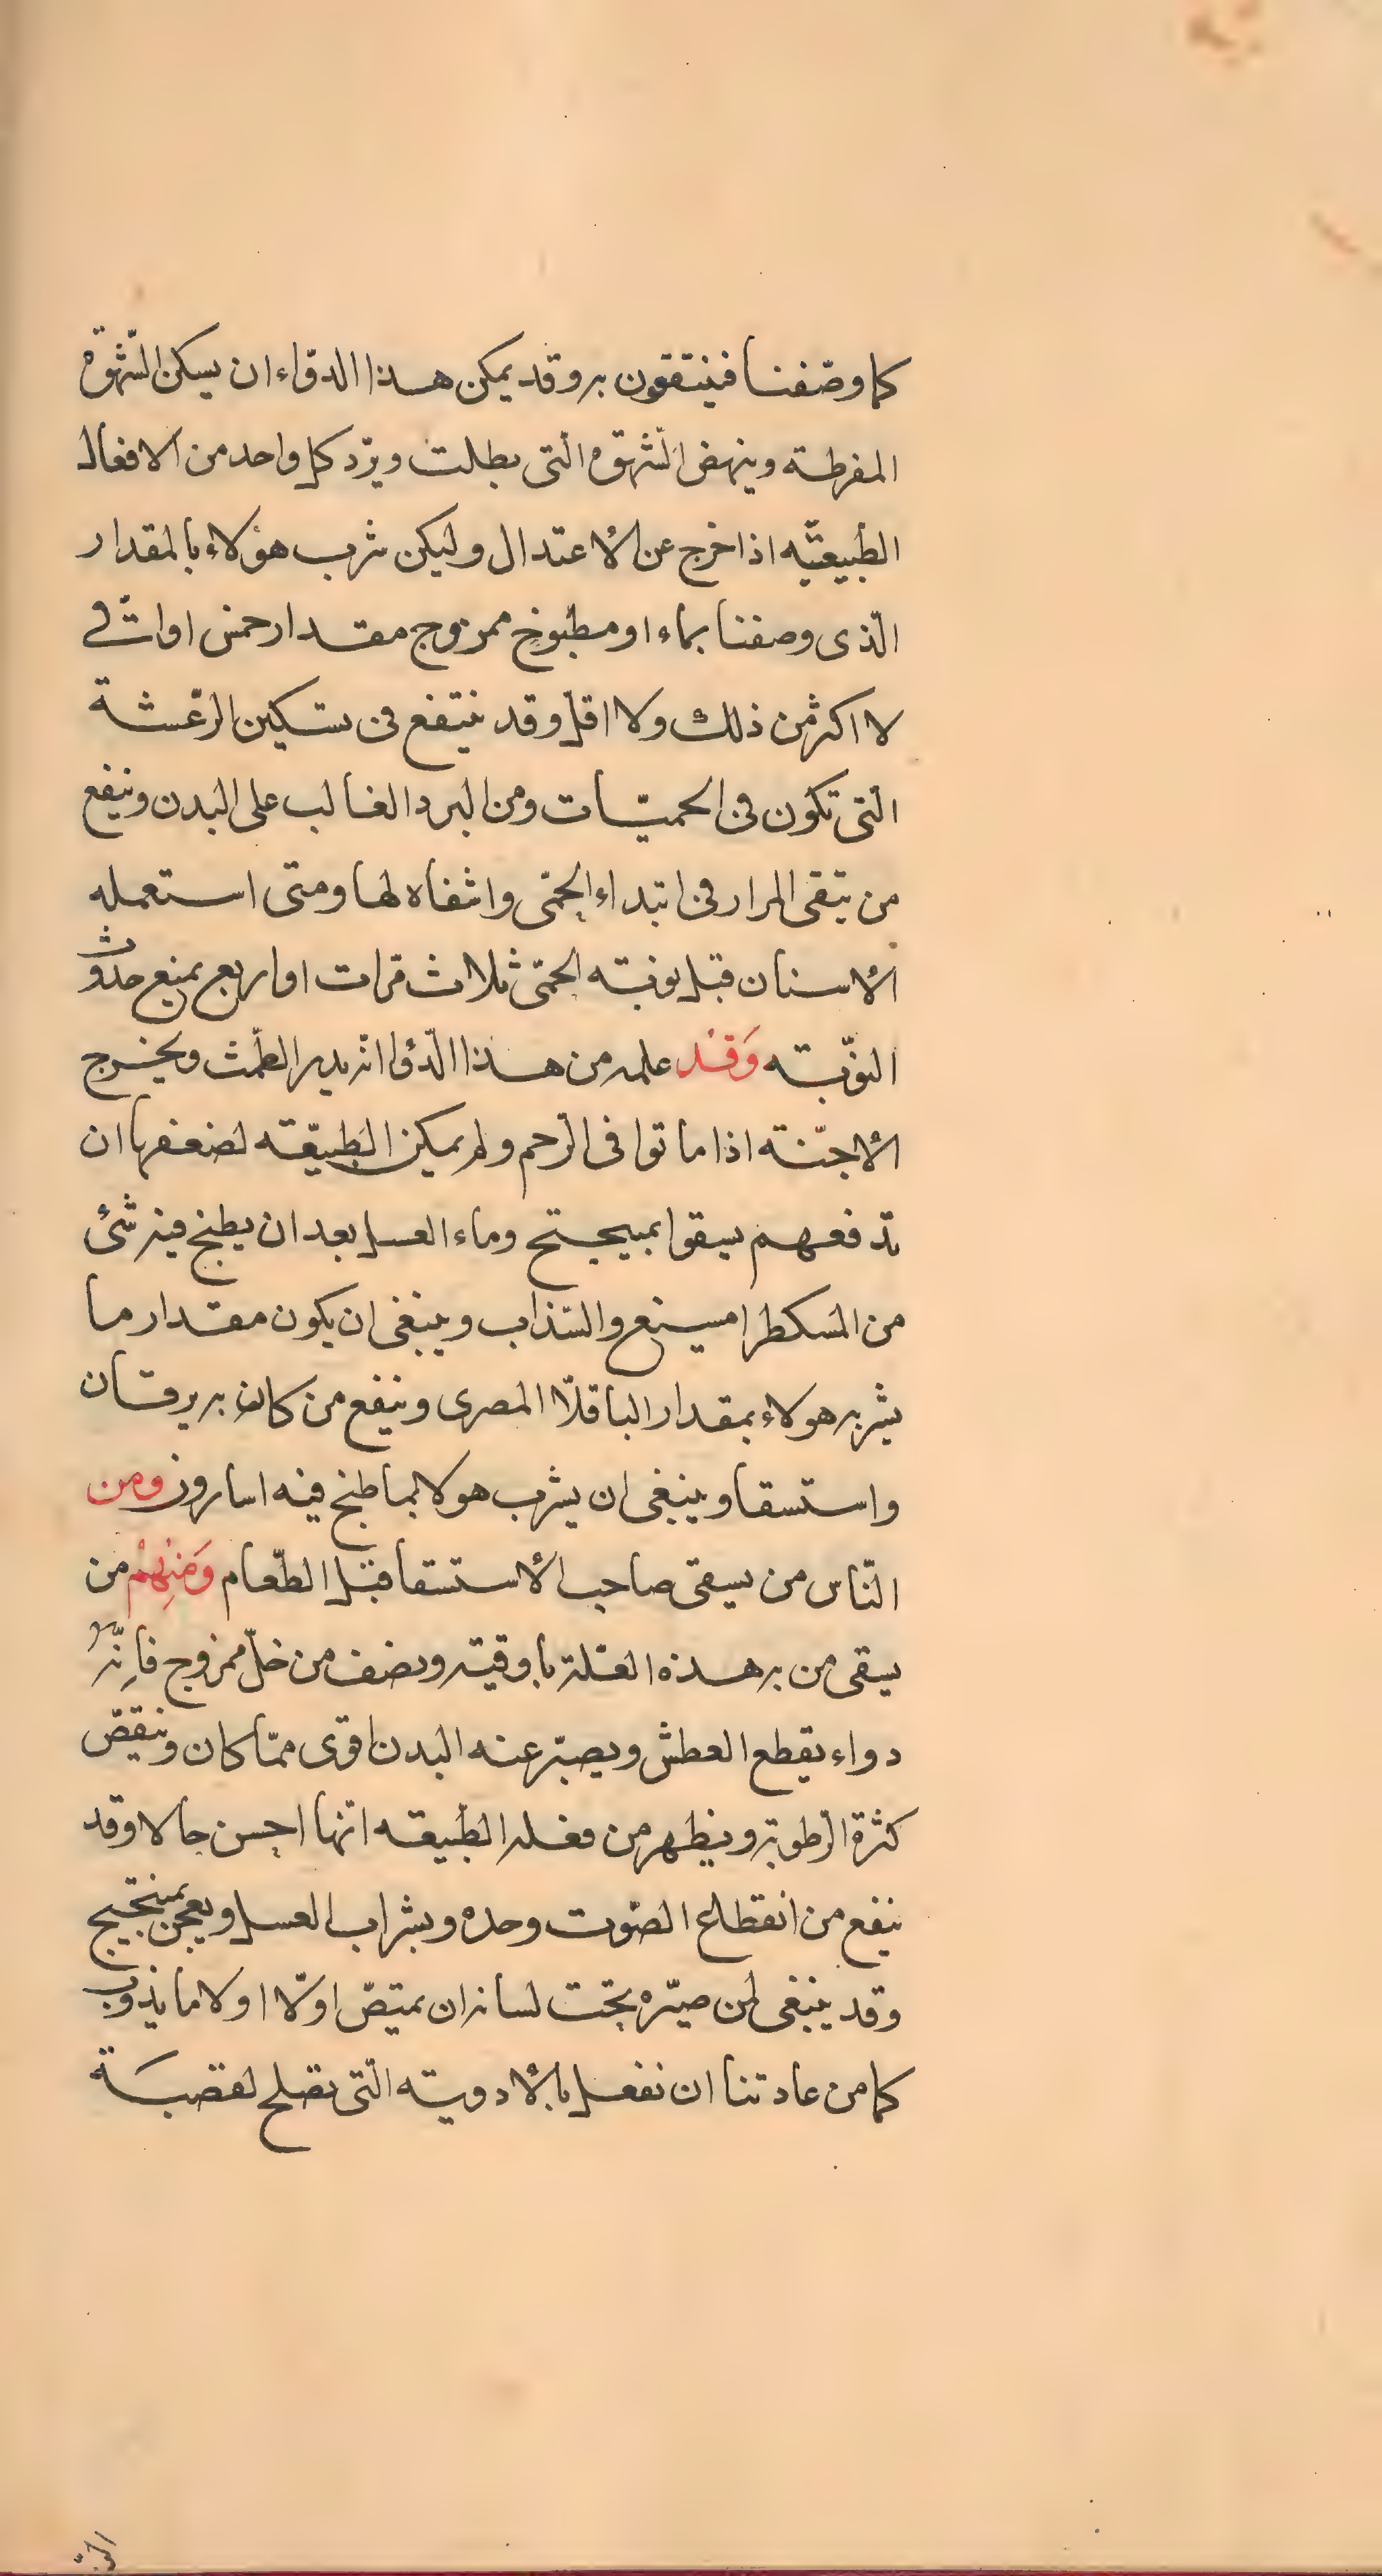 كما وصفنا فينتفعون به وقد يمكن هذا الدوّاء ان يسكن الشّهوّة
المفرطة وينهض الشّهوّة الّتى بطلت ويردّ كل واحد من الافعال
الطّبيعيّه اذا خرج عن الأعتدال وليكن شرب هؤلاء بالمقدار
الّذى وصفنا بماء او مطبوخ ممزوج مقدار خمس اواقّى
لا اكثر من ذلك ولا اقل وقد ينتفع فى تسكين الرّعشة
الّتى تكون فى الحميّات ومن البرد الغالب على البدن وينفع
من يتقى المرار فى ابتداء الحمّى واشفاه لها ومتى استعمله
الأنسان قبل نوبته الحمّى ثلاث مّرات او اربع يمنع حدوث
النّوبّته وَقَد علم من هذا الدّوا انّه يدر الطّمث ويخرج
الأجنّته اذا ماتوا فى الرّحم ولم يمكن الطّبيعّته لضعفها ان
تدفعهم يسقوا بميبختج وماء العسل بعد ان يطبخ فيه شئ
من المشكطرامسيع والسّذاب وينبغى ان يكون مقدار ما
يشربه هولاء بمقدار الباقلّا المصرى وينفع من كان به يرقان
واستسقا وينبغى ان يشرب هولا بما طبخ فيه اسارون ومن
النّاس من يسقى صاحب الأستسقا قبل الطّعام وَمِنهُمْ من
يسقى من به هذه العّلة باوقية ونصف من خلّ ممزوج فَاِنّهُ
دواء يقطع العطش ويصيّر عنه البدن اقوى ممّا كان وينقصّ
كثرة الرّطوبة ويظهر من فعله الطّبيعه انّها احسن حالا وقد
ينفع من انقطاع الصّوت وحده وبشراب العسل ويعجن بميبختج
وقد ينبغى لمن صيّره تحت لسانه ان يمتصّ اوّلا اولا ما يذوب
كما من عادتنا ان نفعل بالأدويته الّتى تصلح لقصبَة